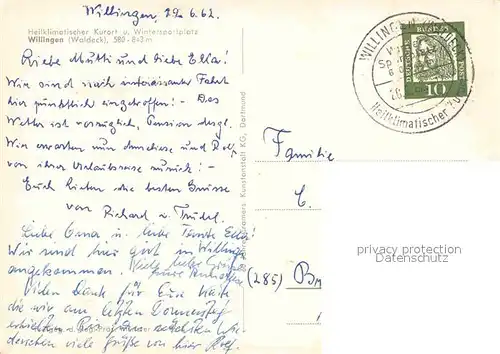 Willingen, 22. 6. 62.
Heilklimatischer Kurort u. Wintersportplatz
Willingen (Waldeck), 580 - 843 m
Liebe Mutti und liebe Ella!
Wir sind nach interessanter Fahrt
hier pünktlich eingetroffen! - Das
Wetter ist vorzüglich, Pension desgl.
Wir erwarten nun Anneliese und Rolf
von ihrer Urlaubsreise zurück! -
Euch Lieben die besten Grüsse
von Richard u. Trudel.
Liebe Oma u. liebe Tante Ella!
Wir sind hier gut in Willingen
angekommen. Viele liebe Grüße
Vielen Dank für Eure Karte
die wir am letzten Donnerstag
erhielten. Bis zum nächsten Wie-
dersehen viele Grüße von hier Rolf.
Kunstanstalt KG, Dortmund
WILLINGEN
Heilklimatischer Kur
DEUTSCHE BUNDESPOST
10
Familie
(285)
privacy protection
Datenschutz